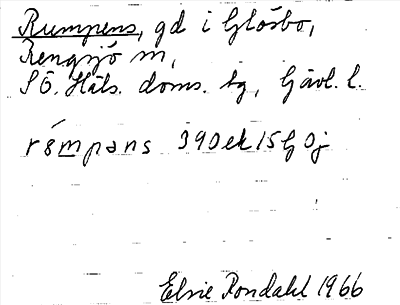 Rumpens, gd i Glösbo,
Rengsjö sn,
SÖ. Häls. doms. tg, Gävl. l.
rómpəns 390 ek 15G 0j
Elsie Rondahl 1966